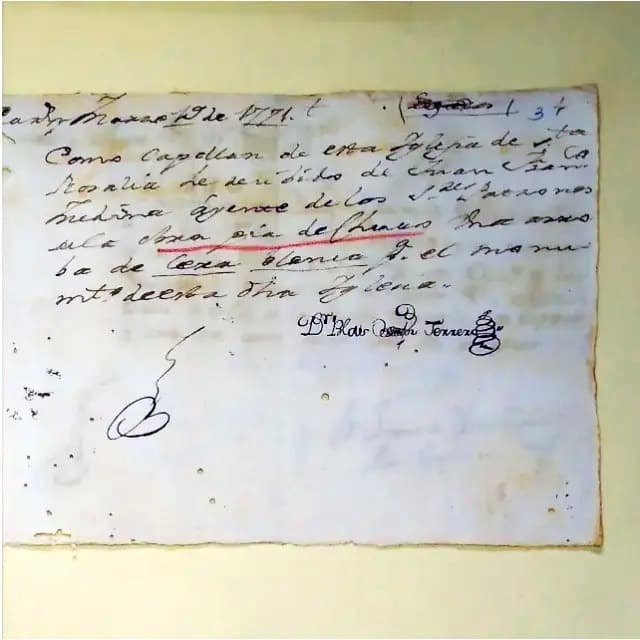 Marzo 19 de 1771.
Como Capellan de esta Yglesia de Sta
Rosalia he recibido de Juan Franco
Medina Agente de los Sres Patronos
de la Obra pia de Chuao una arro
ba de Cera blanca pa. el monu
mto. de esta dha Yglesia.
Dr. Blas Terrero